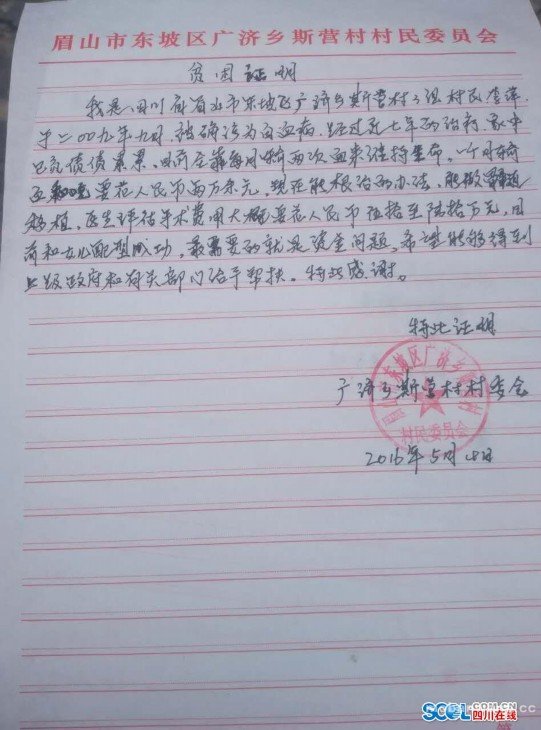 眉山市东坡区广济乡斯营村村民委员会
贫困证明
我是四川省眉山市东坡区广济乡斯营村3组村民
于二00九年九月被确诊为白血病。经过近七年的治疗,家中
已负债债累累,目前全靠每月输两次血来维持生命,一个月输
血和吃 要花人民币两万余元,现在能根治的办法,
移植,医生评估手术费用大概要花人民币伍拾至陆拾万元,目
前和女儿配型成功,最需要的就是资金问题。希望能够得到
上级政府和有关部门给予帮扶。特此感谢。
特此证明
广济乡斯营村村委会
村民委员会
2016年5月 日
SCOL.COM.CN
四川在线